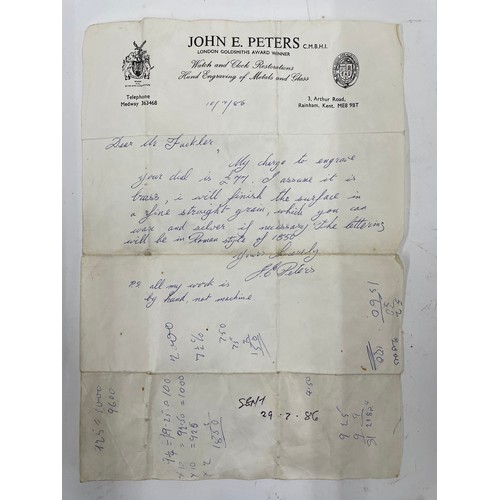 JOHN E. PETERS C.M.B.H.I.
LONDON GOLDSMITHS AWARD WINNER
Watch and Clock Restorations
Hand Engraving of Metals and Glass
Telephone
Medway 363468
3, Arthur Road,
Rainham, Kent. ME8 9BT
10/7/86
Dear Mr
My charge to engrave
your dial is £77. I assume it is
brass, i will finish the surface in
a fine straight grain, which you can
wax and silver if necessary. The lettering
will be in Roman style of 1850
Yours Sincerely
J.E. Peters
P.S. all my work is
by hand, not machine
7½%
750
75
1560
SENT
29-7-86
925 = 1000
9600
x 10 = 925
x 2 1850